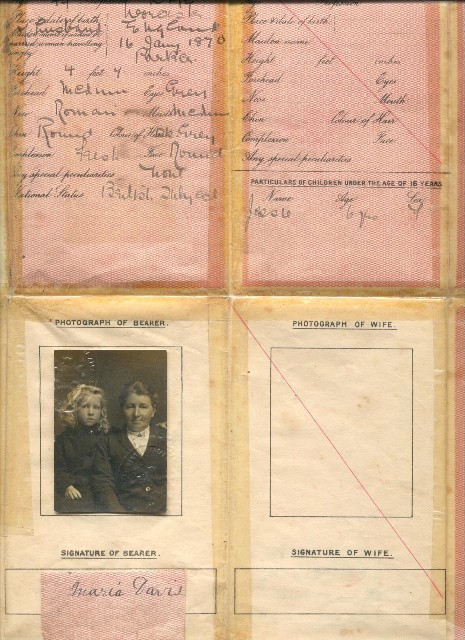 Place & date of birth
England
16 Jany 1870
Maiden name if widow or
married woman travelling
singly
Parker
Height 4 feet 4 inches
Forehead Medium Eyes Grey
Nose Roman Mouth Medium
Chin Round Colour of Hair Grey
Complexion Fresh Face Round
Any special peculiarities
National Status British Subject
Place & date of birth
Maiden name
Height feet inches
Forehead Eyes
Nose Mouth
Chin Colour of Hair
Complexion Face
Any special peculiarities
PARTICULARS OF CHILDREN UNDER THE AGE OF 16 YEARS
Name Age Sex
6 yrs
PHOTOGRAPH OF BEARER.
PHOTOGRAPH OF WIFE.
SIGNATURE OF BEARER.
SIGNATURE OF WIFE.
Maria Davis